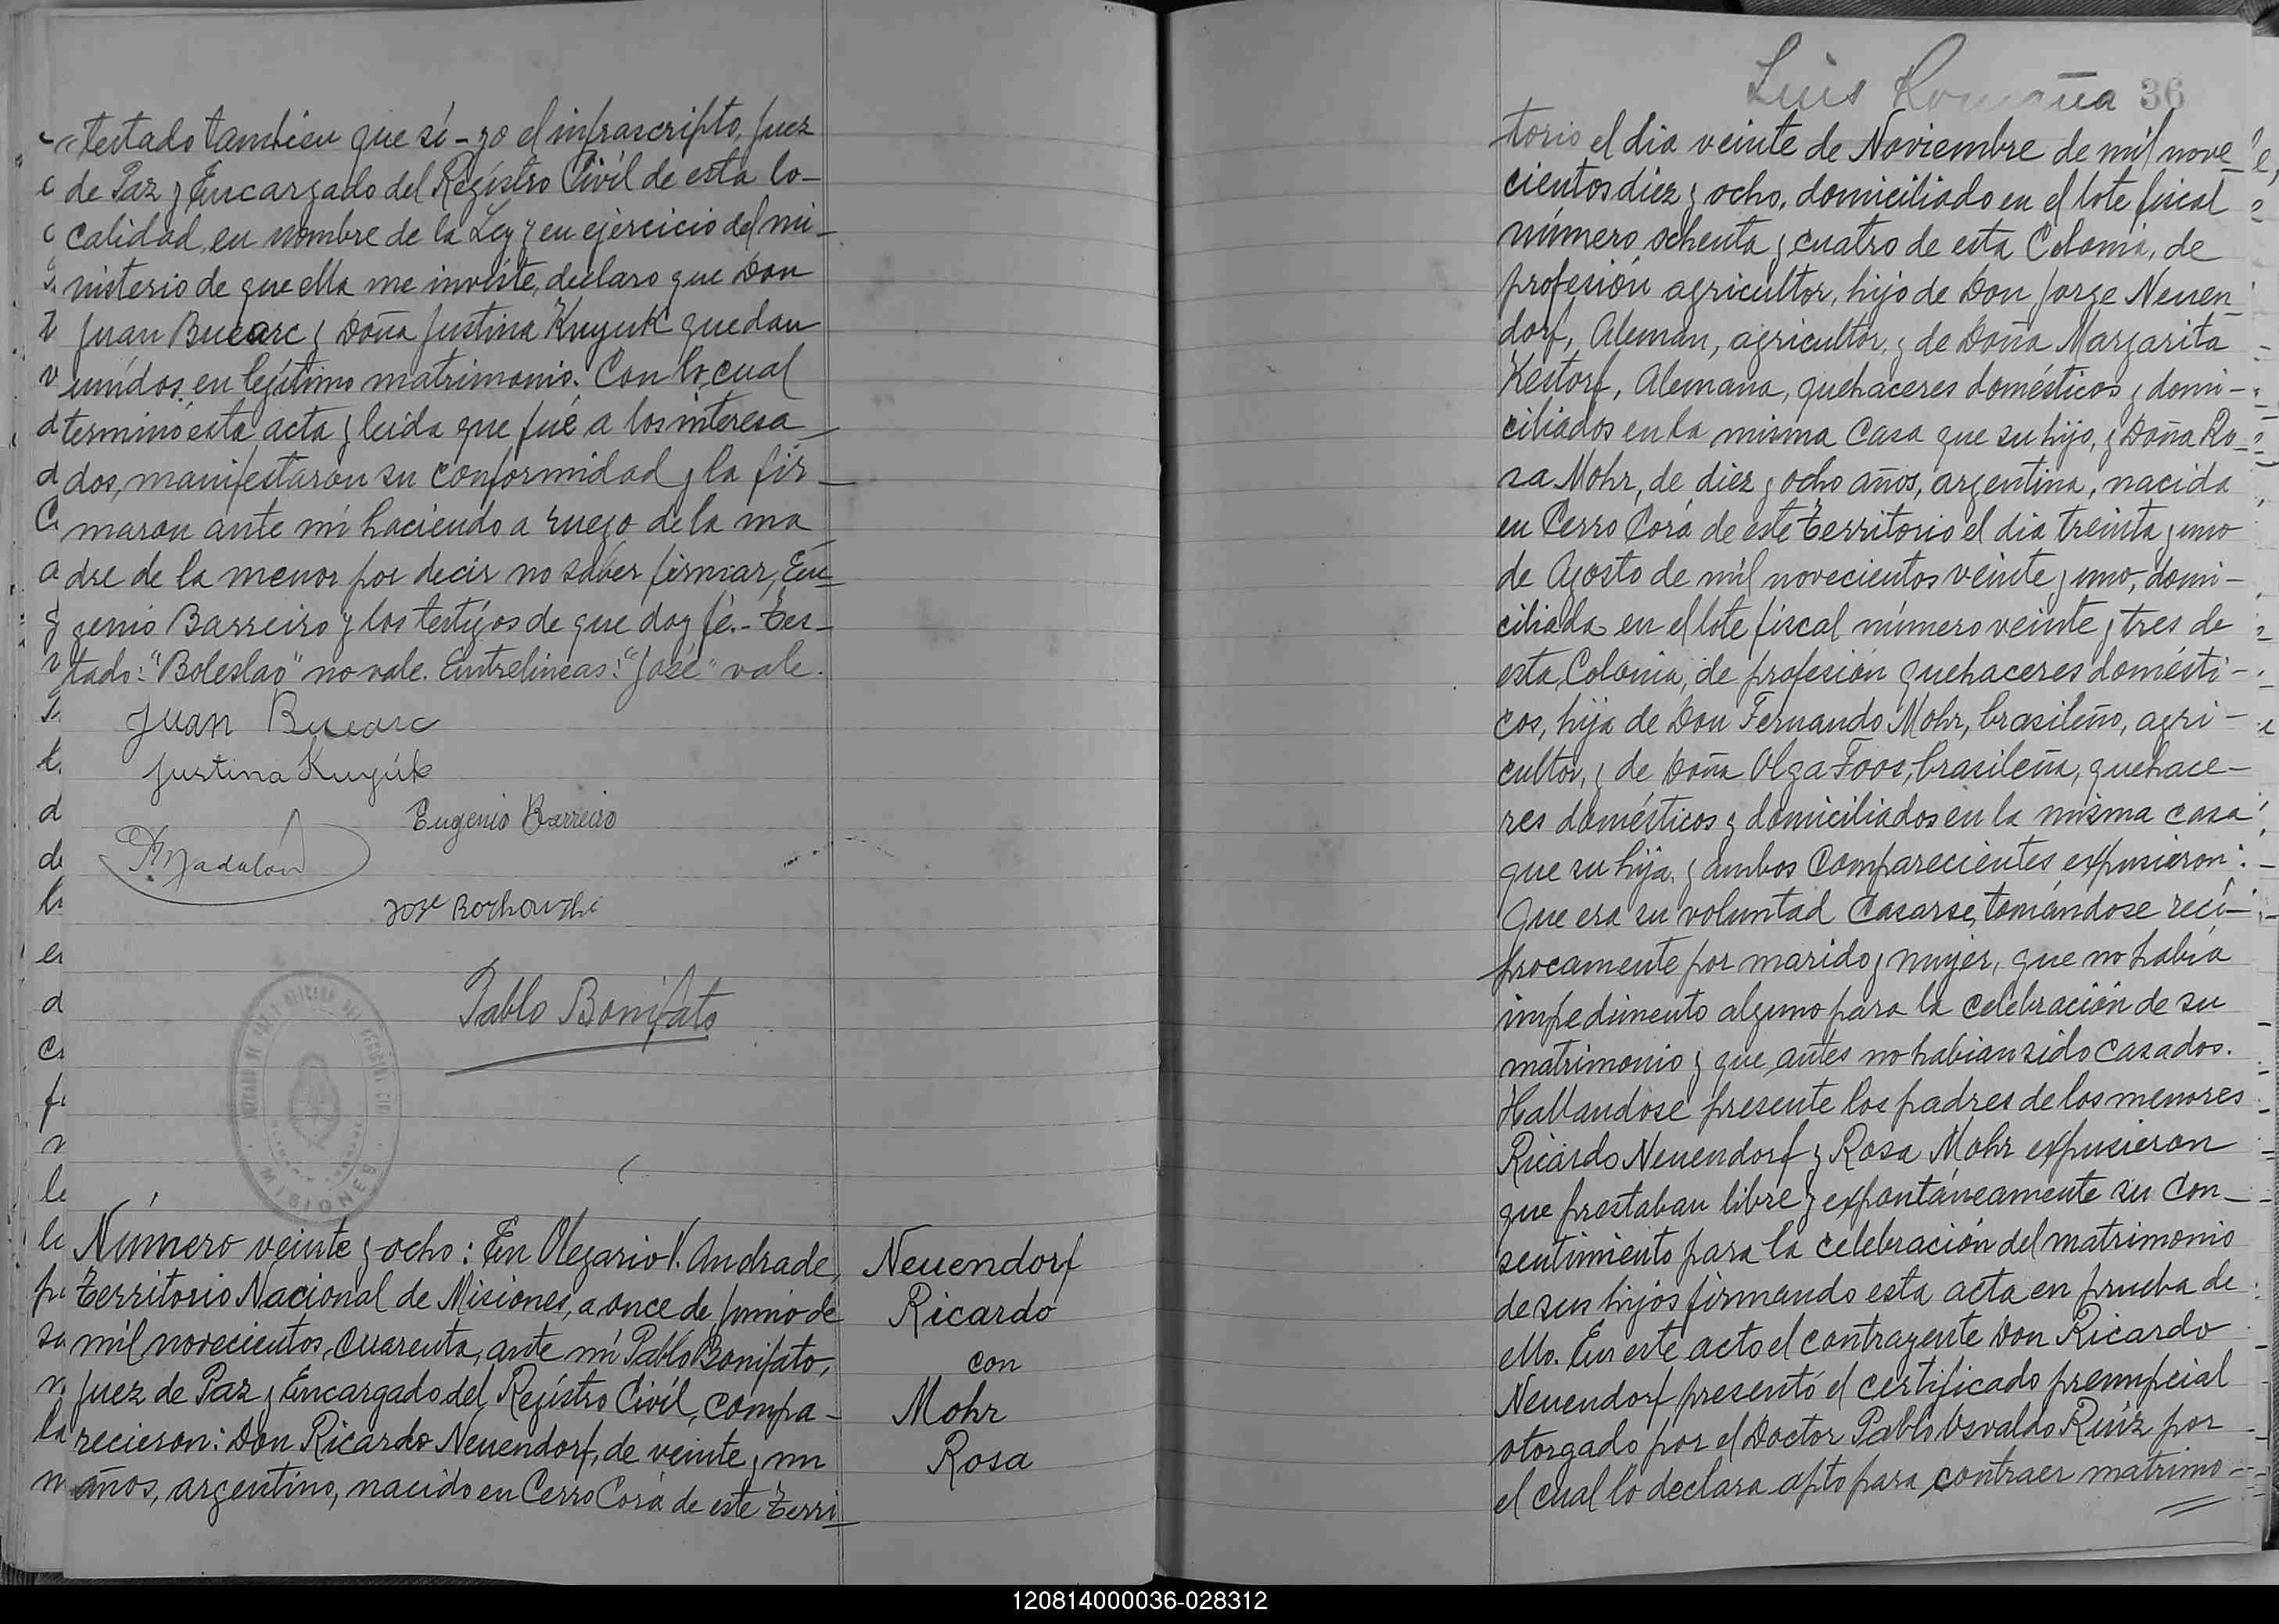 testado tambien que sí - yo el infrascripto, Juez
de Paz y Encargado del Registro Civil de esta lo-
calidad en nombre de la Ley y en ejercicio del mi-
nisterio de que ella me inviste, declaro que Don
Juan Bucarc y Doña Justina Kuyuk quedan
unidos en legítimo matrimonio. Con lo cual
terminó esta acta y leida que fué a los interesa-
dos, manifestaron su conformidad y la fir-
maron ante mí haciendo a ruego de la ma
dre de la menor por decir no saber firmar, Eu-
genio Barreiro y los testigos de que doy fé.- Tes-
tado: "Boleslao" no vale. Entrelineas: "José" vale.
Juan Bucarc
Justina Kuyúk
Eugenio Barreiro
Pablo Bonifato
MISIONES
Número veinte y ocho: En Olegario V. Andrade,
Territorio Nacional de Misiones, a once de Junio de
mil novecientos cuarenta, ante mí Pablo Bonifato,
Juez de Paz y Encargado del Registro Civil, compa-
recieron: Don Ricardo Neuendorf, de veinte y un
años, argentino, nacido en Cerro Corá de este Terri-
Neuendorf
Ricardo
con
Mohr
Rosa
Luis 36
torio el dia veinte de Noviembre de mil nove-
cientos diez y ocho, domiciliado en el lote fiscal
número ochenta y cuatro de esta Colonia, de
profesión agricultor, hijo de Don Jorge Neuen-
dorf, Aleman, agricultor, y de Doña Margarita
Kestorf, Alemana, quehaceres domésticos y domi-
ciliados en la misma casa que su hijo, y Doña Ro-
sa Mohr, de diez y ocho años, argentina, nacida
en Cerro Corá de este Territorio el dia treinta y uno
de Agosto de mil novecientos veinte y uno, domi-
ciliada en el lote fiscal número veinte y tres de
esta Colonia, de profesión quehaceres domésti-
cos, hija de Don Fernando Mohr, brasileño, agri-
cultor, y de Doña Olga Foos, brasileña, quehace-
res domésticos y domiciliados en la misma casa
que su hija, y ambos comparecientes expusieron:
Que era su voluntad casarse, tomándose recí-
procamente por marido y mujer, que no había
impedimento alguno para la celebración de su
matrimonio y que antes no habian sido casados.
Hallandose presente los padres de los menores
Ricardo Neuendorf y Rosa Mohr expusieron
que prestaban libre y expontáneamente su con-
sentimiento para la celebración del matrimonio
de sus hijos firmando esta acta en prueba de
ello. En este acto el contrayente Don Ricardo
Neuendorf presentó el certificado prenupcial
otorgado por el Doctor Pablo Osvaldo Ruiz por
el cual lo declara apto para contraer matrimo-
120814000036-028312